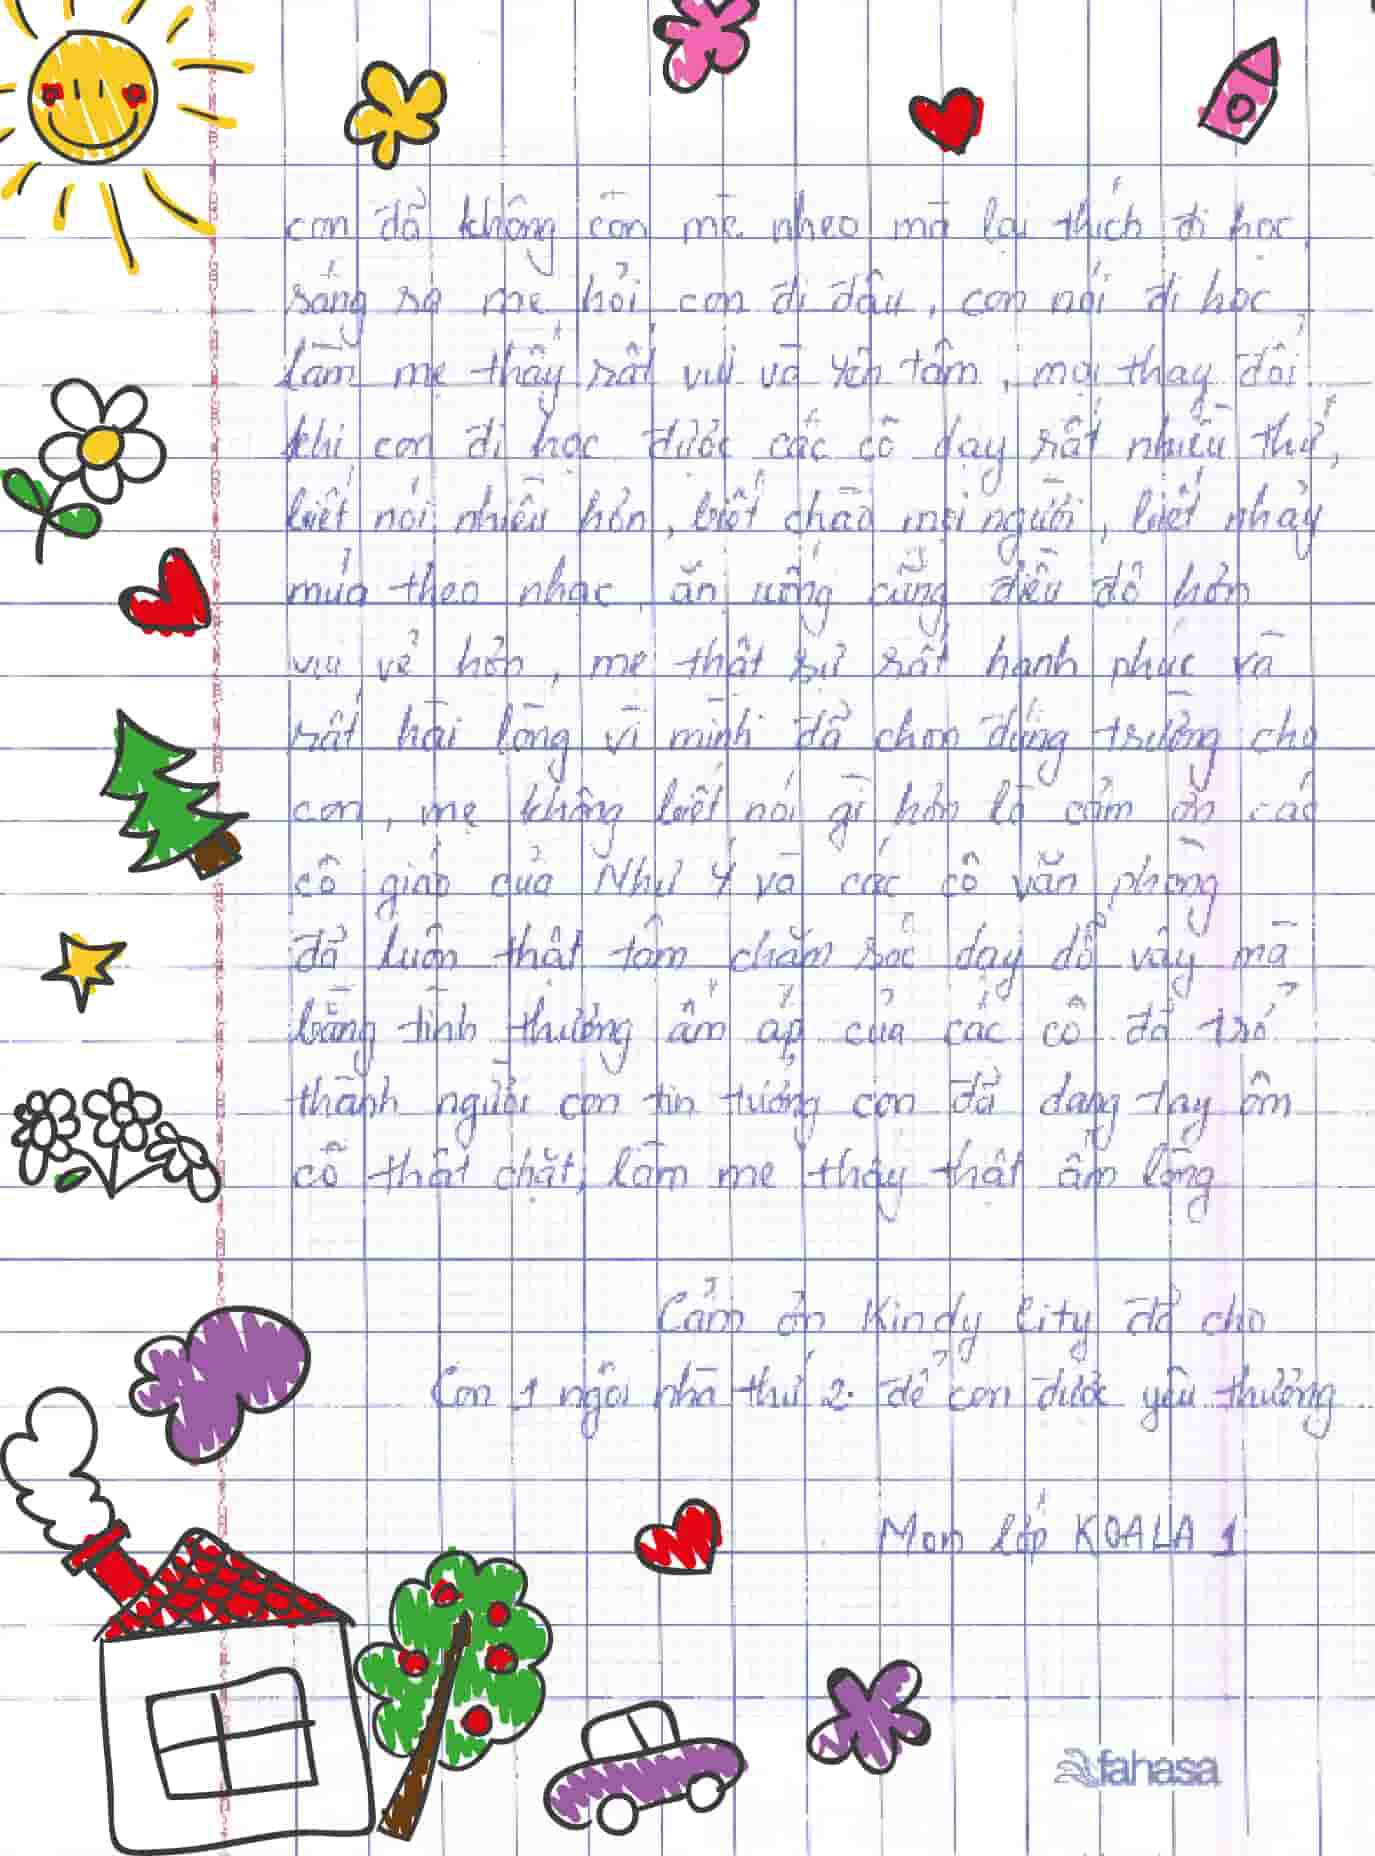 con đã không còn mè nheo mà lại thích đi học.
sáng ra mẹ hỏi con đi đâu, con nói đi học
làm mẹ thấy rất vui và yên tâm, mọi thay đổi
khi con đi học được các cô dạy rất nhiều thứ,
biết nói nhiều hơn, biết chào mọi người, biết nhảy
múa theo nhạc, ăn uống cũng điều độ hơn
vui vẻ hơn, mẹ thật sự rất hạnh phúc và
rất hài lòng vì mình đã chọn đúng trường cho
con, mẹ không biết nói gì hơn là cảm ơn các
cô giáo của Như Ý và các cô văn phòng
đã luôn thật tâm chăm sóc dạy dỗ vậy mà
bằng tình thương ấm áp của các cô đã trở
thành người con tin tưởng con đã dang tay ôm
cô thật chặt, làm mẹ thấy thật ấm lòng
Cảm ơn Kindy City đã cho
Con 1 ngôi nhà thứ 2. để con được yêu thương.
Mom lớp KOALA 1
fahasa